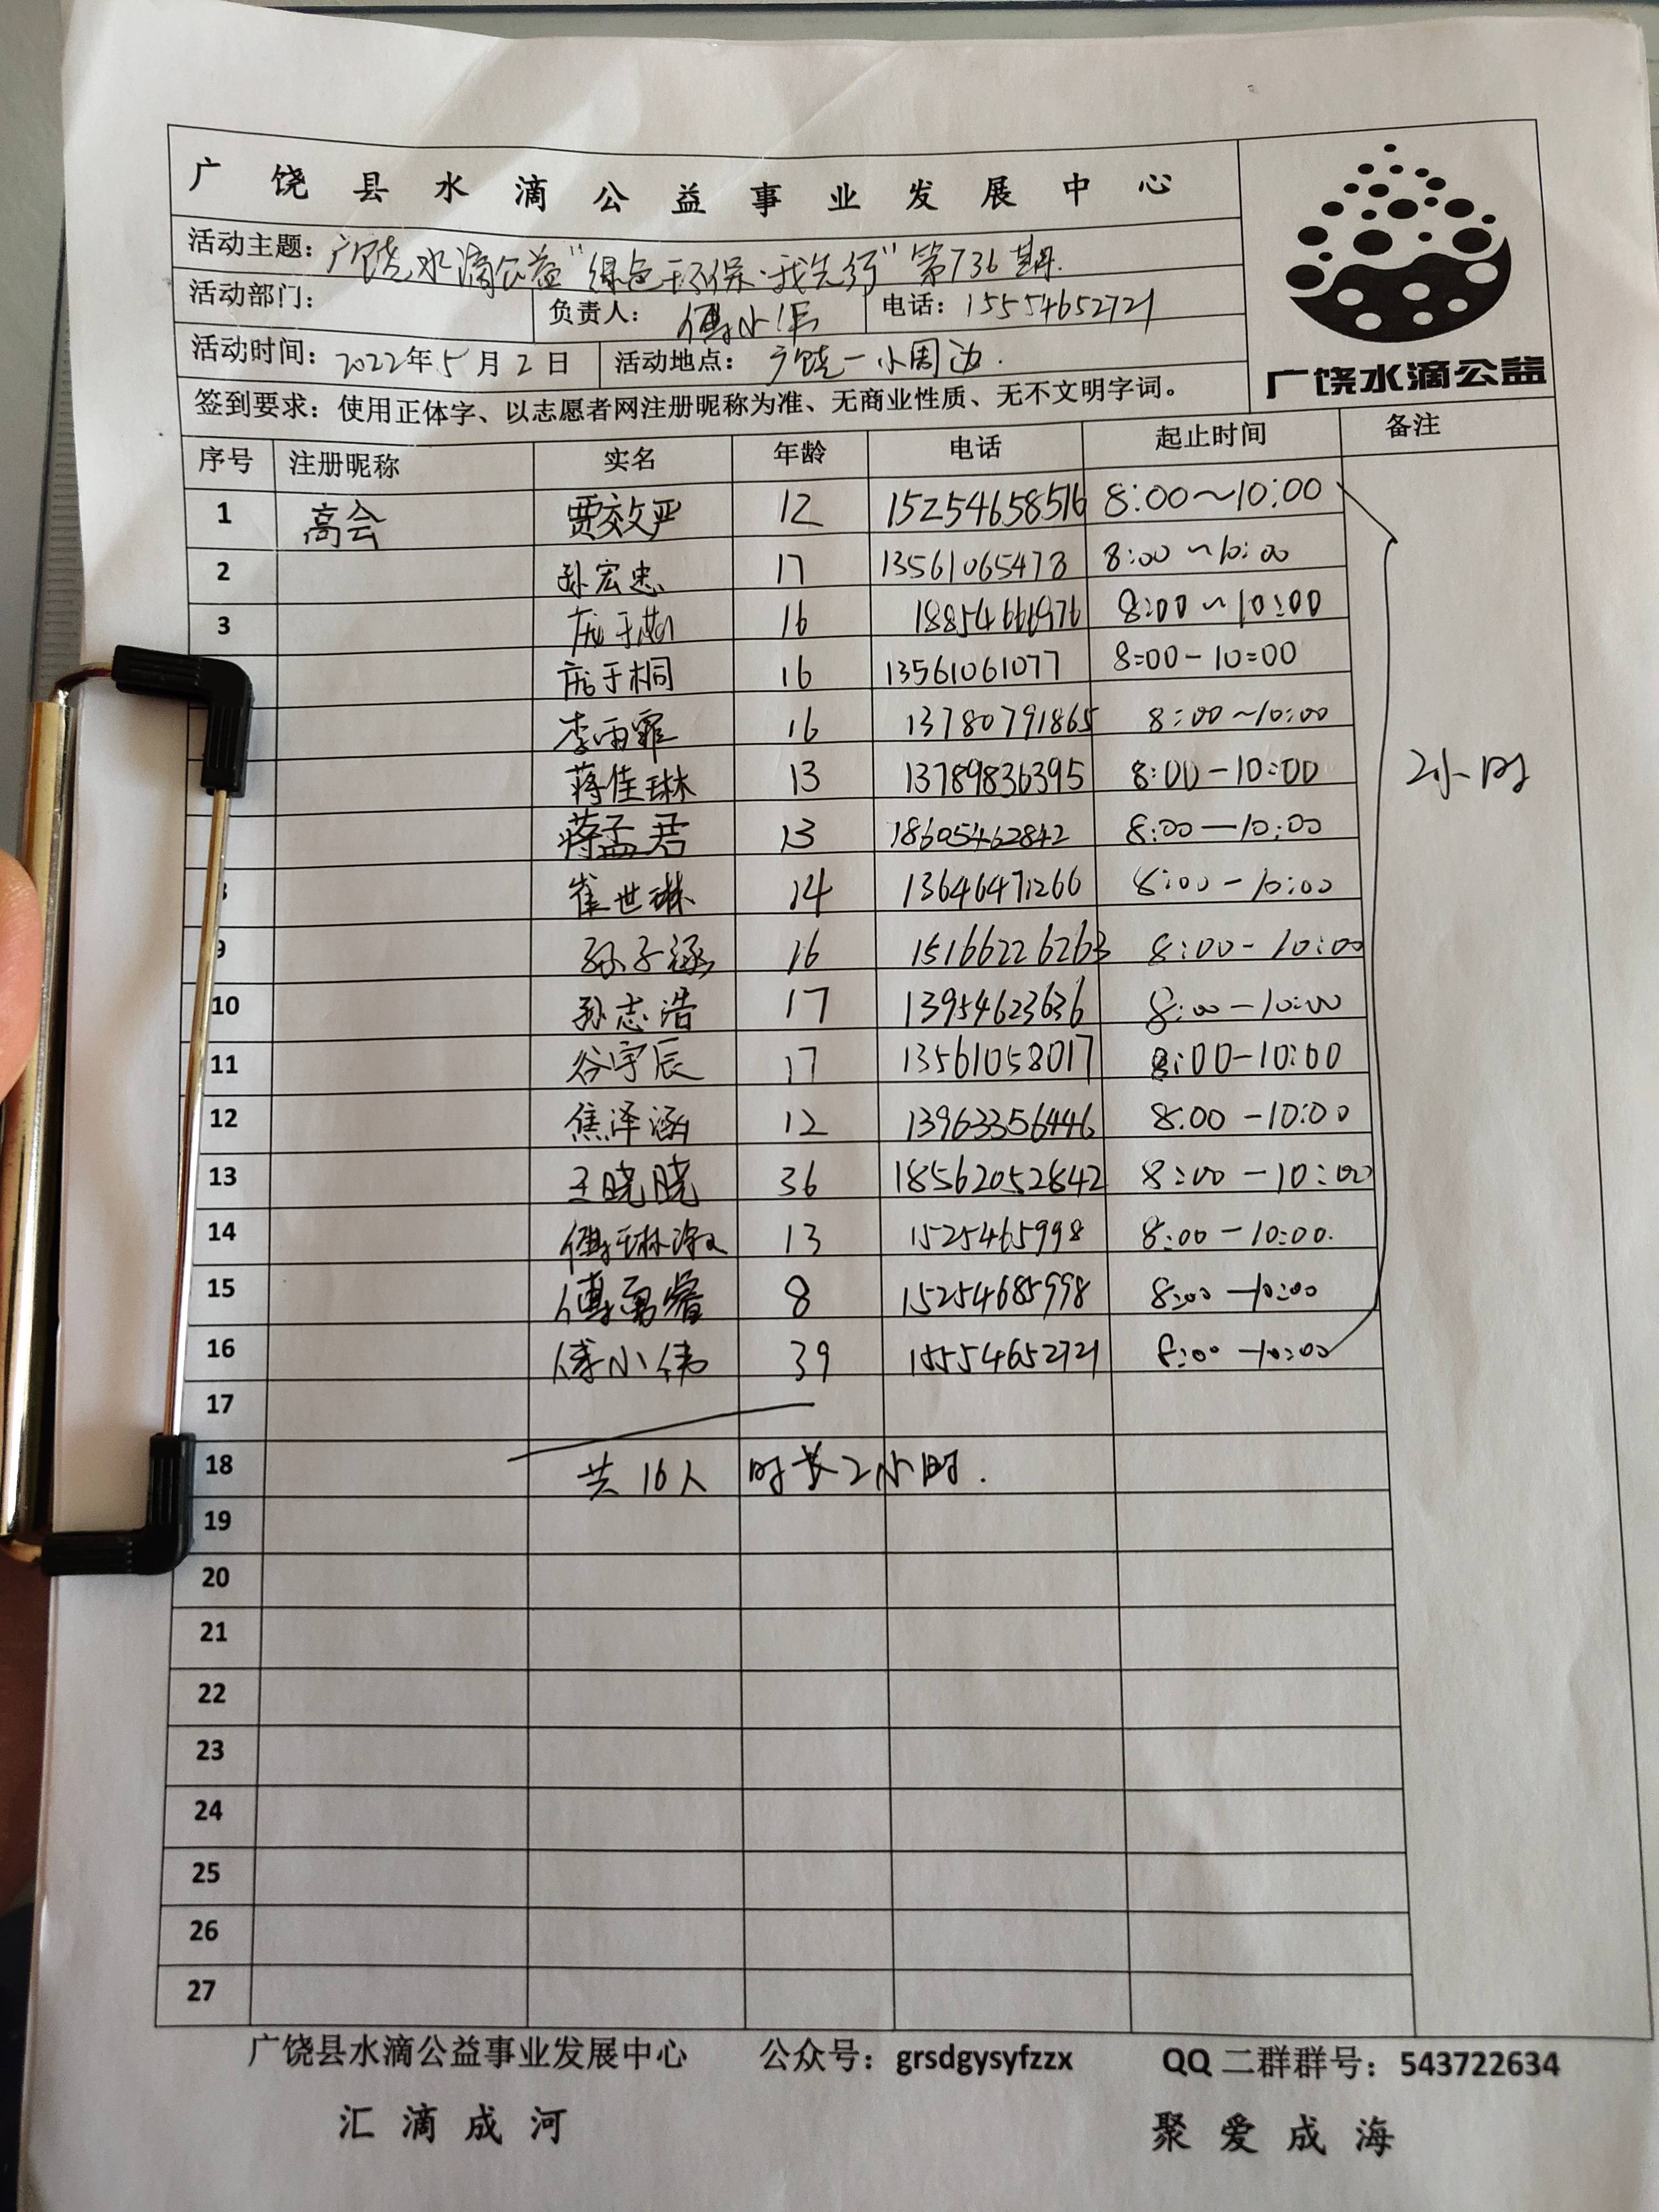 广饶县水滴公益事业发展中心
活动主题：广饶水滴公益"绿色环保·我先行"第736期.
活动部门： 负责人：傅小伟 电话：15554652721
活动时间：2022年5月2日 活动地点：广饶一小周边.
签到要求：使用正体字、以志愿者网注册昵称为准、无商业性质、无不文明字词。
广饶水滴公益
序号 注册昵称 实名 年龄 电话 起止时间 备注
1 高会 贾效严 12 15254658516 8:00～10:00
2 孙宏忠 17 13561065478 8:00～10:00
3 庞于 16 18854666976 8:00～10:00
庞于桐 16 13561061077 8:00-10:00
李雨霏 16 13780791865 8:00～10:00
蒋佳琳 13 13789836395 8:00-10:00
2小时
蒋孟君 13 18605462842 8:00-10:00
崔世琳 14 13646471266 8:00-10:00
9 孙子涵 16 15166226263 8:00-10:00
10 孙志浩 17 13954623636 8:00-10:00
11 谷宇辰 17 13561058017 8:00-10:00
12 焦泽涵 12 13963356446 8:00-10:00
13 王晓晓 36 18562052842 8:00-10:00
14 傅琳淑 13 1525465998 8:00-10:00.
15 傅勇睿 8 15254685998 8:00-10:00
16 傅小伟 39 15554652721 8:00-10:00
17
18 共16人 时长2小时.
19
20
21
22
23
24
25
26
27
广饶县水滴公益事业发展中心 公众号：grsdgysyfzzx QQ二群群号：543722634
汇滴成河 聚爱成海